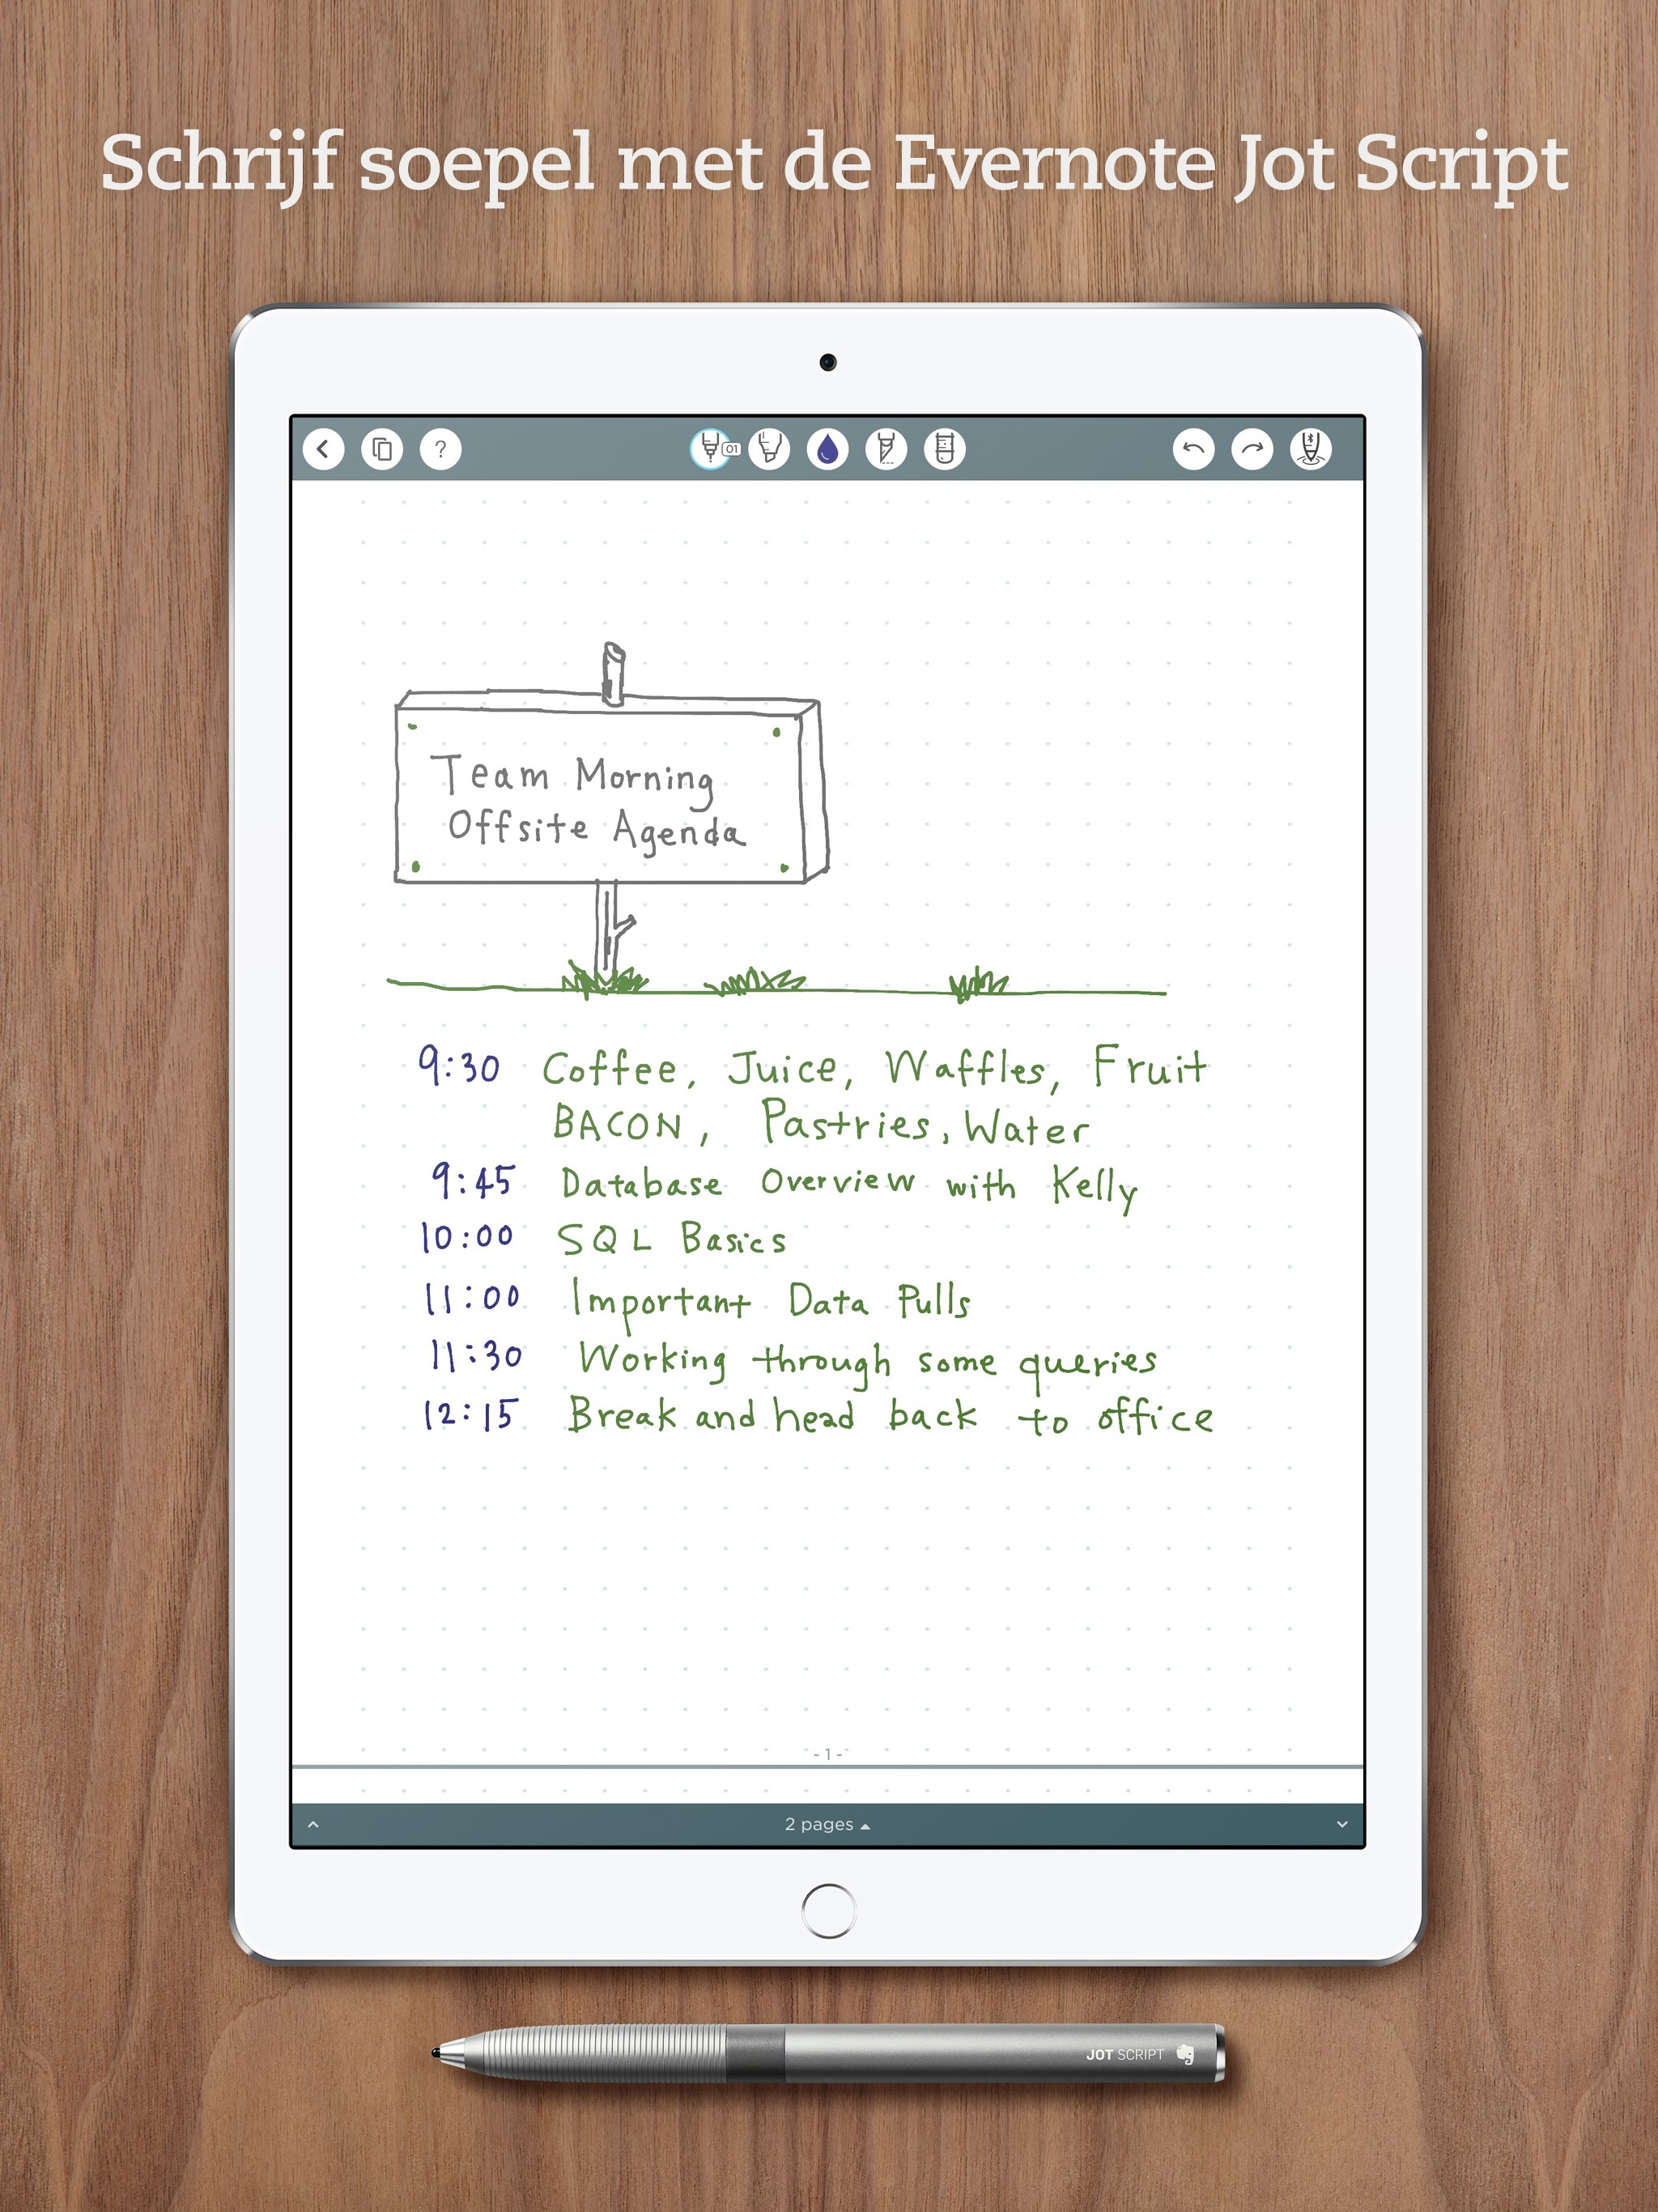 Schrijf soepel met de Evernote Jot Script
?
01
Team Morning
Offsite Agenda
9:30 Coffee, Juice, Waffles, Fruit
BACON, Pastries, Water
9:45 Database Overview with Kelly
10:00 SQL Basics
11:00 Important Data Pulls
11:30 Working through some queries
12:15 Break and head back to office
- 1 -
2 pages
JOT SCRIPT